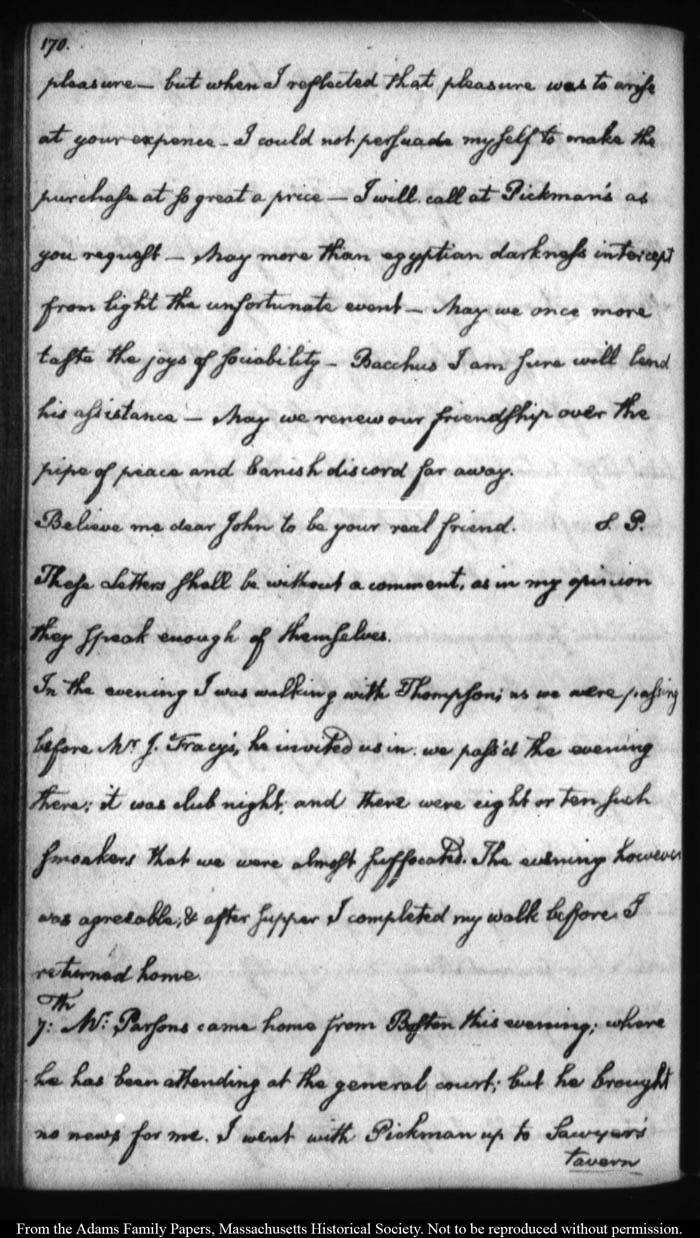 170.
pleasure — but when I reflected that pleasure was to arise
at your expence — I could not persuade myself to make the
purchase at so great a price — I will call at Pickman's as
you request — May more than egyptian darkness intercept
from light the unfortunate event — May we once more
taste the joys of sociability — Bacchus I am sure will lend
his assistance — May we renew our friendship over the
pipe of peace and banish discord far away.
Believe me dear John to be your real friend. S. P.
These Letters shall be without a comment, as in my opinion
they speak enough of themselves.
In the evening I was walking with Thompson; as we were passing
before Mr. J. Tracy's, he invited us in: we pass'd the evening
there; it was club night; and there were eight or ten such
smoakers that we were almost suffocated. The evening however
was agreeable, & after supper I completed my walk before I
returned home.
Th
7: Mr: Parsons came home from Boston this evening; where
he has been attending at the general court; but he brought
no news for me. I went with Pickman up to Sawyer's
tavern
From the Adams Family Papers, Massachusetts Historical Society. Not to be reproduced without permission.